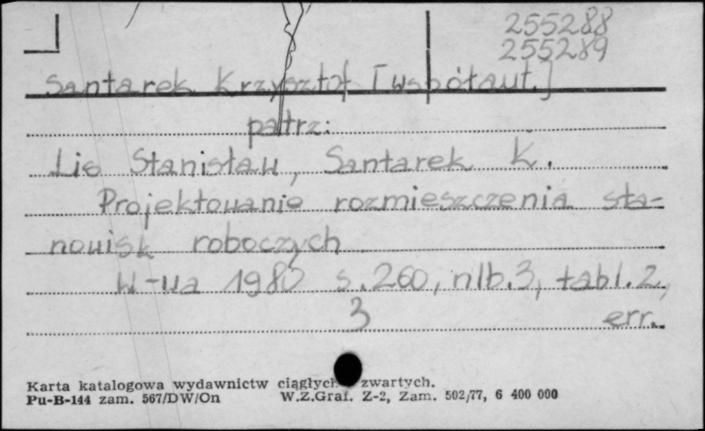 255288
255289
Santarek Krzysztof [współaut.]
patrz:
Lis Stanisław, Santarek K.
Projektowanie rozmieszczenia sta-
nowisk roboczych
W-wa 1980 s. 260, nlb. 3, tabl. 2,
3 err.
Karta katalogowa wydawnictw ciągłych zwartych.
Pu-B-144 zam. 567/DW/On W.Z.Graf. Z-2, Zam. 502/77, 6 400 000